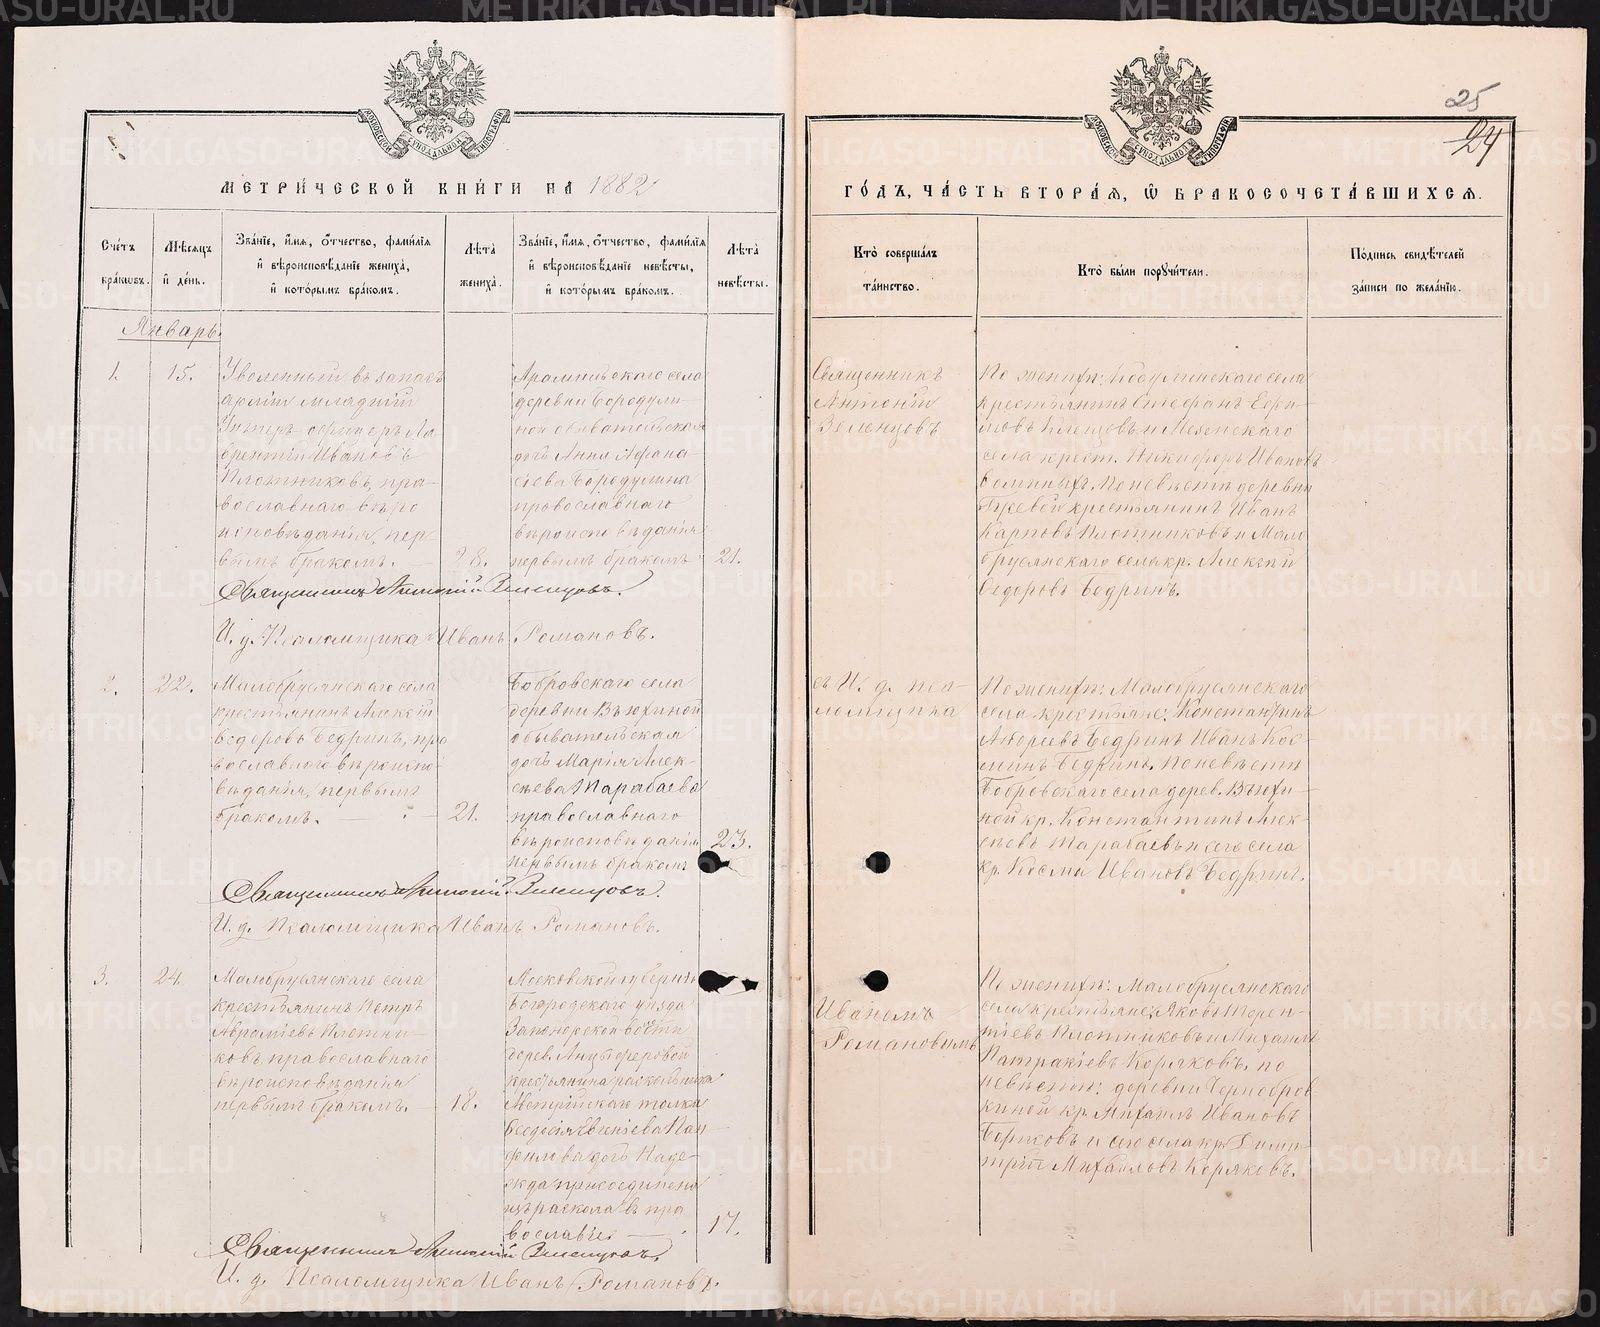 МЕТРИ́ЧЕСКОЙ КНИ́ГИ НА 1882
ГО́ДЪ, ЧА́СТЬ ВТОРА́Я, Ѿ БРАКОСОЧЕТА́ВШИХСЯ.
25
24
Сче́тъ бра́кѡвъ.
Мѣ́сѧцъ и҆ де́нь.
Зва́нїе, и҆́мѧ, ѻ҆́тчество, фами́лїѧ и҆ вѣроисповѣ́данїе жениха̀, и҆ кото́рымъ бра́комъ.
Лѣ́та жениха̀.
Зва́нїе, и҆́мѧ, ѻ҆́тчество, фами́лїѧ и҆ вѣроисповѣ́данїе невѣ́сты, и҆ кото́рымъ бра́комъ.
Лѣ́та невѣ́сты.
Кто̀ соверша́лъ та́инство.
Кто̀ бы́ли порꙋчи́тели.
По́дпись свидѣ́телей за́писи по жела́нїю.
Январь.
1.
15.
Уволенный въ запасъ
арміи младшій
Унтеръ-офицеръ Ла-
врентій Ивановъ
Плотниковъ, пра-
вославнаго вѣро
исповѣданія, пер-
вымъ бракомъ.
28.
Арамильскаго села
деревни Бородули-
ной обывательская
дочь Анна Афана-
сьева Бородулина
православнаго
вѣроисповѣданія
первымъ бракомъ
21.
Священникъ
Антоній
Зеленцовъ
По женихѣ:
села
крестьянинъ Стефанъ Ефи-
мовъ Клещовъ и Мезенскаго
села крест. Никифоръ Ивановъ
По невѣстѣ деревни
крестьянинъ Иванъ
Карповъ Плотниковъ и Мало
брусянскаго села кр. Алексѣй
Ѳедоровъ Бедринъ.
Священникъ Антоній Зеленцовъ.
И. д. Псаломщика Иванъ Романовъ.
2.
22.
Малобрусянскаго села
крестьянинъ Алексѣй
Ѳедоровъ Бедринъ, пра
вославнаго вѣроиспо-
вѣданія, первымъ
бракомъ.
21.
Бобровскаго села
деревни Вьюхиной
обывательская
дочь Марія Алек-
сѣева Тарабаева
православнаго
вѣроисповѣданія
первымъ бракомъ
23.
съ И. д. пса-
ломщика
По женихѣ: Малобрусянскаго
села крестьяне: Константинъ
Андреевъ Бедринъ Иванъ Кос-
минъ Бедринъ. По невѣстѣ
Бобровскаго села дерев. Вьюхи-
ной кр. Константинъ Алек-
сѣевъ Тарабаевъ и сего села
кр. Косма Ивановъ Бедринъ.
Священникъ Антоній Зеленцовъ.
И. д. Псаломщика Иванъ Романовъ.
3.
24.
Малобрусянскаго села
крестьянинъ Петръ
Авраміевъ Плотни-
ковъ, православнаго
вѣроисповѣданія
первымъ бракомъ.
18.
Московской губерніи
Богородскаго уѣзда
Запонорской волости
дерев. Анцыферовой
крестьянина раскольника
толка
Ѳеодосія Евгеніева Пан-
филова дочь Наде-
жда присоединена
изъ раскола въ пра
вославіе
17.
Иваномъ
Романовымъ
По женихѣ: Малобрусянскаго
села крестьяне: Яковъ Терен-
тіевъ Плотниковъ и Михаилъ
Патракіевъ Коряковъ, по
невѣстѣ: деревни Чернобров
киной кр. Михаилъ Ивановъ
и сего села кр. Дими-
трій Михайловъ Коряковъ.
Священникъ Антоній Зеленцовъ.
И. д. Псаломщика Иванъ Романовъ.
METRIKI.GASO-URAL.RU